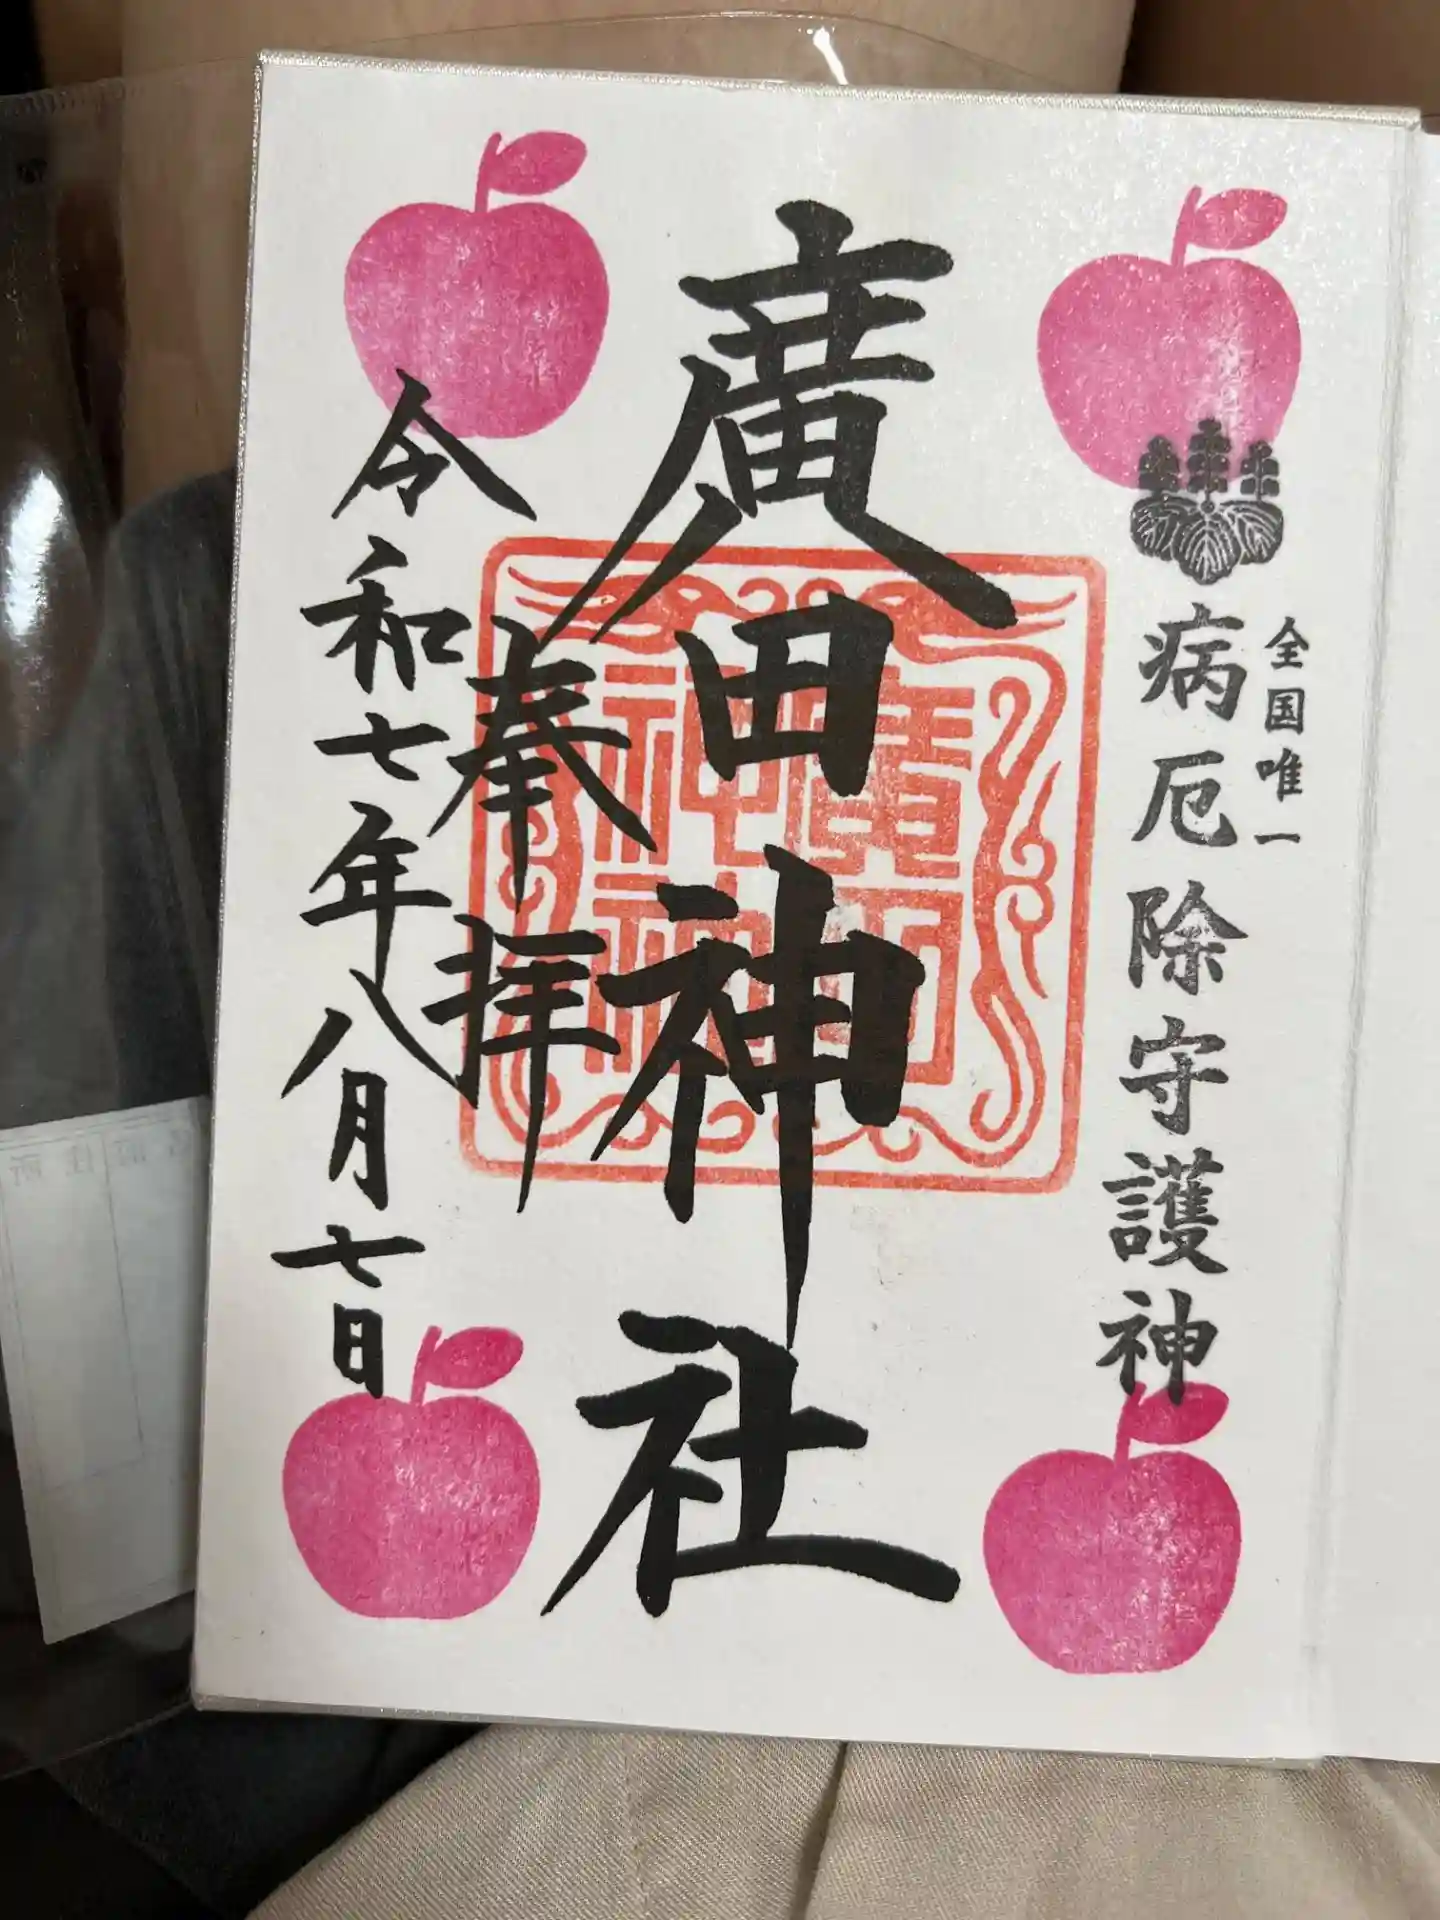 全国唯一
病厄除守護神
廣田神社
奉拝
令和七年八月七日